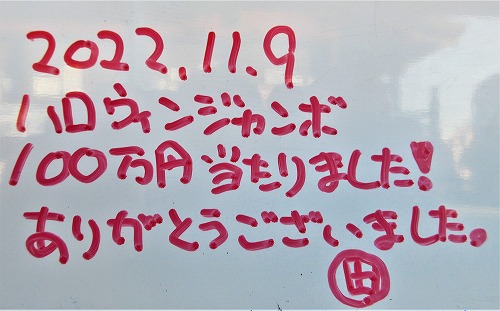 2022.11.9
ハロウィンジャンボ
100万円当たりました!
ありがとうございました。
田